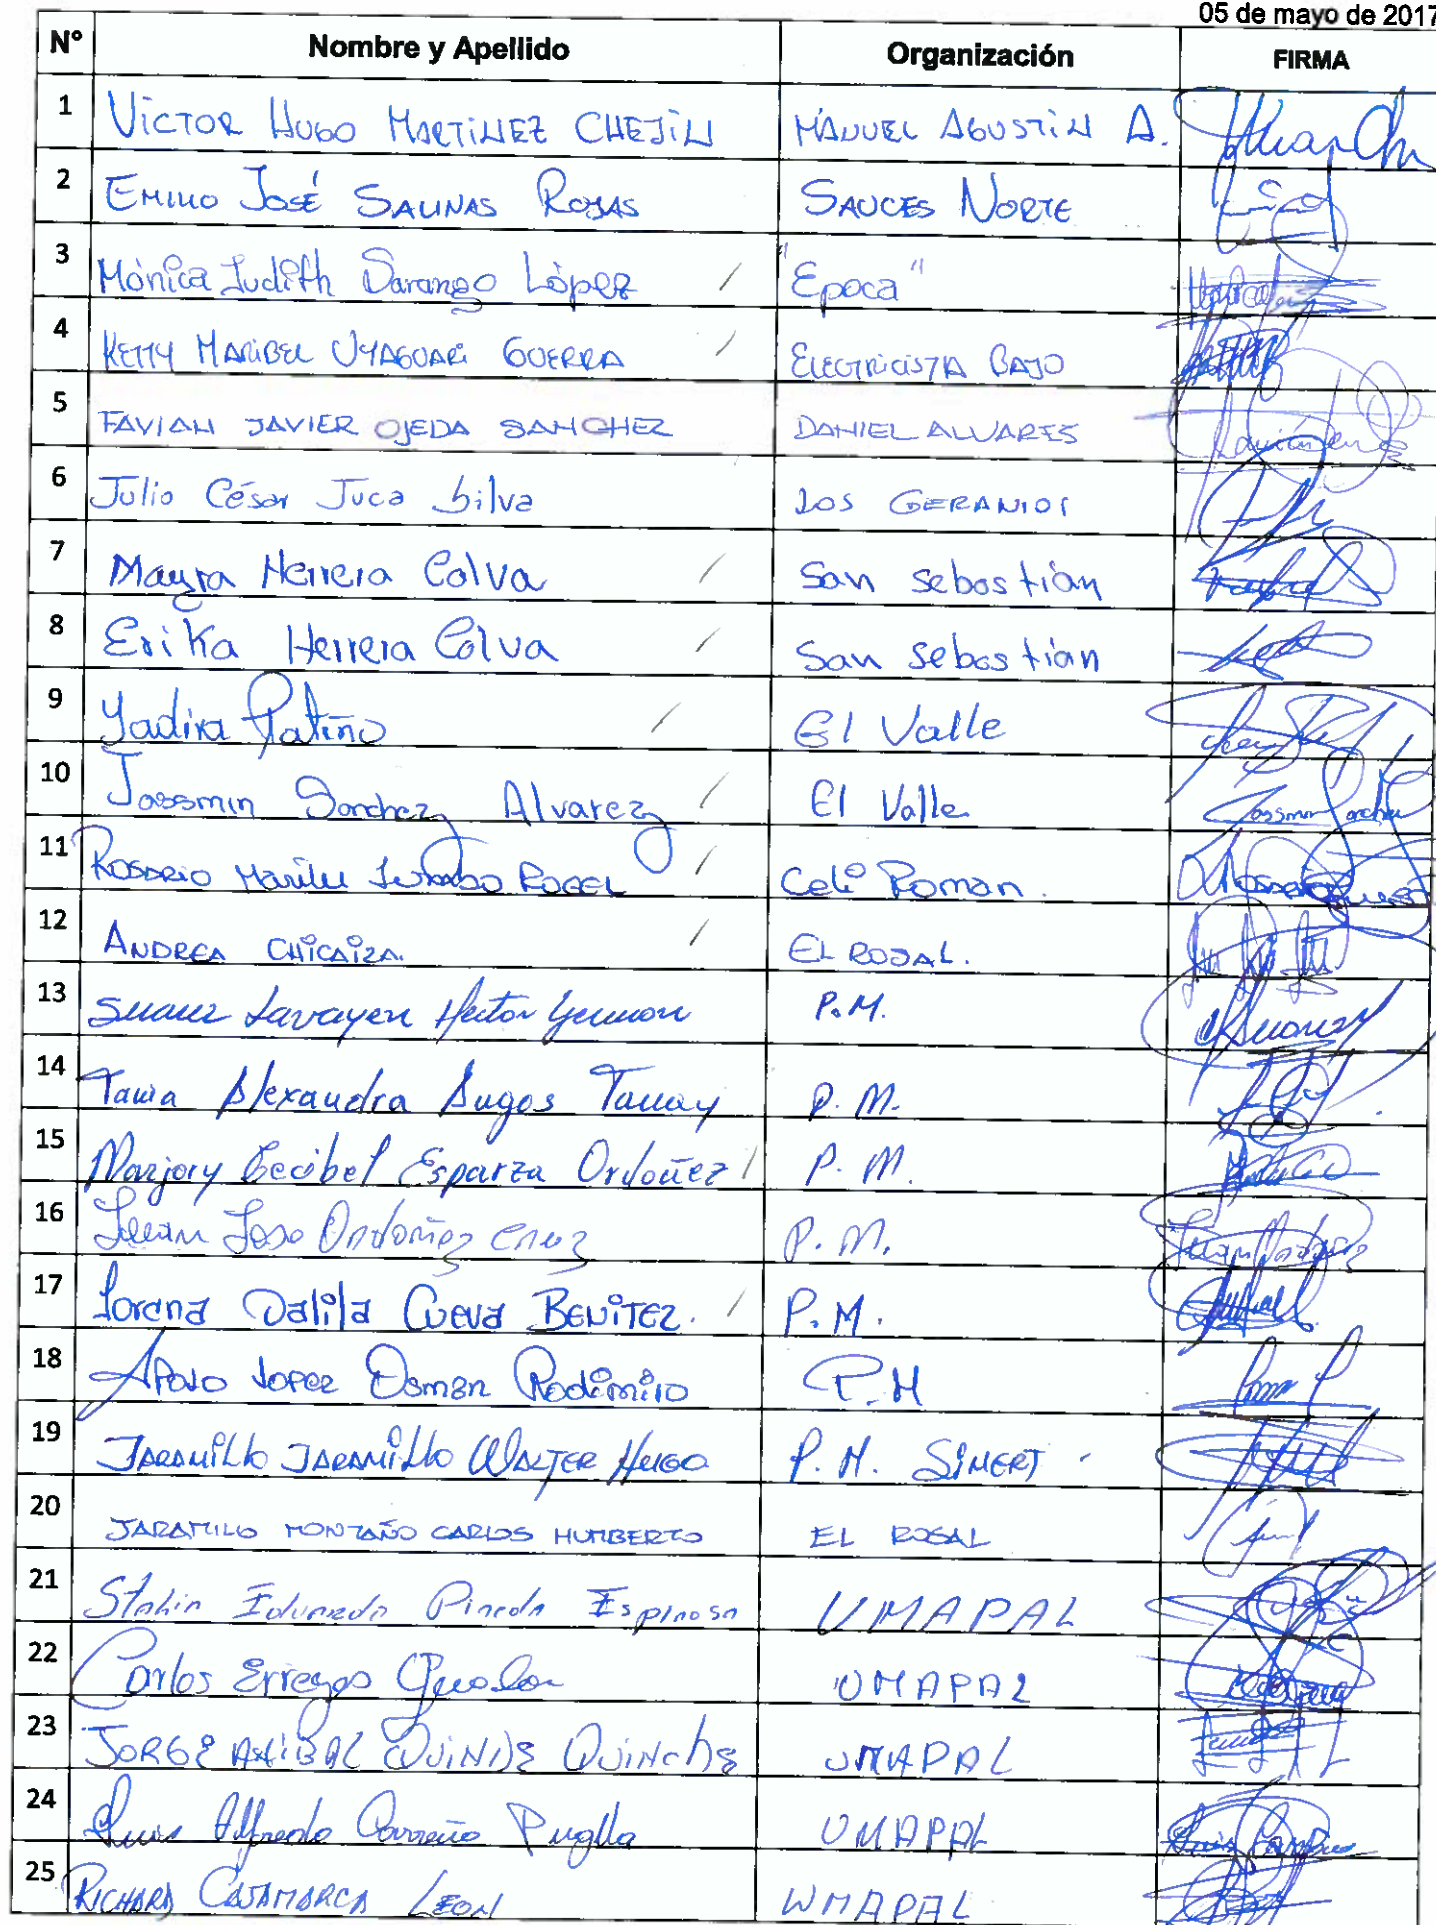 05 de mayo de 2017
N° Nombre y Apellido Organización FIRMA
1 VICTOR HUGO MARTINEZ CHEJIN MANUEL AGUSTIN A.
2 EMILIO JOSÉ SALINAS ROJAS SAUCES NORTE
3 Mónica Judith Sarango López / "Epoca"
4 KETTY MARIBEL UYAGUARI GUERRA / ELECTRICISTA BAJO
5 FAVIAN JAVIER OJEDA SANCHEZ DANIEL ALVARES
6 Julio César Juca Silva LOS GERANIOS
7 Mayra Herrera Calva / San Sebastián
8 Erika Herrera Calva / San Sebastián
9 Yadira Patiño / El Valle
10 Jassmin Sanchez Alvarez / El Valle
11 ROSARIO Marilu ROGEL / Celi Roman.
12 ANDREA CHICAIZA. / EL ROSAL.
13 Suarez Lavayen Hector P.M.
14 Tania Alexandra P.M.
15 Marjory Cecibel Esparza Ordoñez / P.M.
16 Juan Jose Ordoñez Cruz P.M.
17 Lorena Dalila Cueva BENITEZ. / P.M.
18 APOLO LOPEZ Osman Rodimiro P.M
19 JARAMILLO JARAMILLO WALTER HUGO P.M. SIMERT -
20 JARAMILLO MONTAÑO CARLOS HUMBERTO EL ROSAL
21 Stalin Eduardo Pineda Espinosa UMAPAL
22 Carlos Erreyes UMAPAL
23 JORGE ANIBAL QUINDE QUINCHE UMAPAL
24 Luis Alfredo Carreño Puglla UMAPAL
25 RICHARD CAJAMARCA LEON UMAPAL